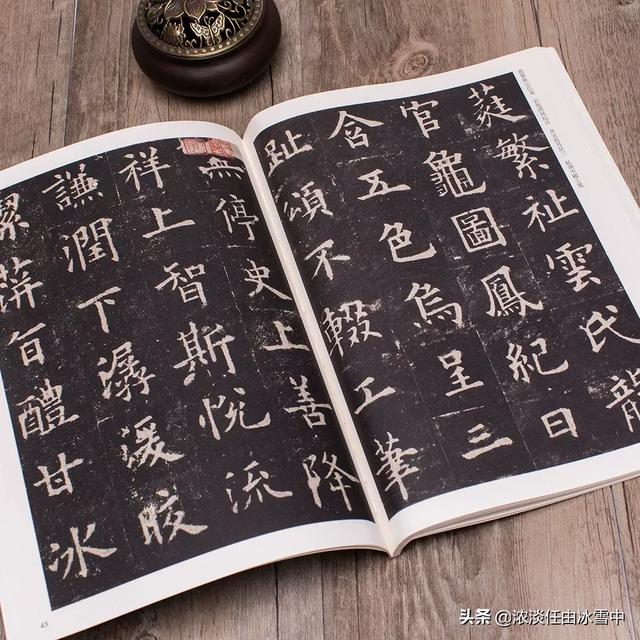 蕤繁祉雲氏龍
官龜圖鳳紀日
含五色烏呈三
趾頌不輟工筆
無停史上善降
祥上智斯悅流
謙潤下潺湲皎
潔蓱旨醴甘冰
43
头条 @浓淡任由冰雪中